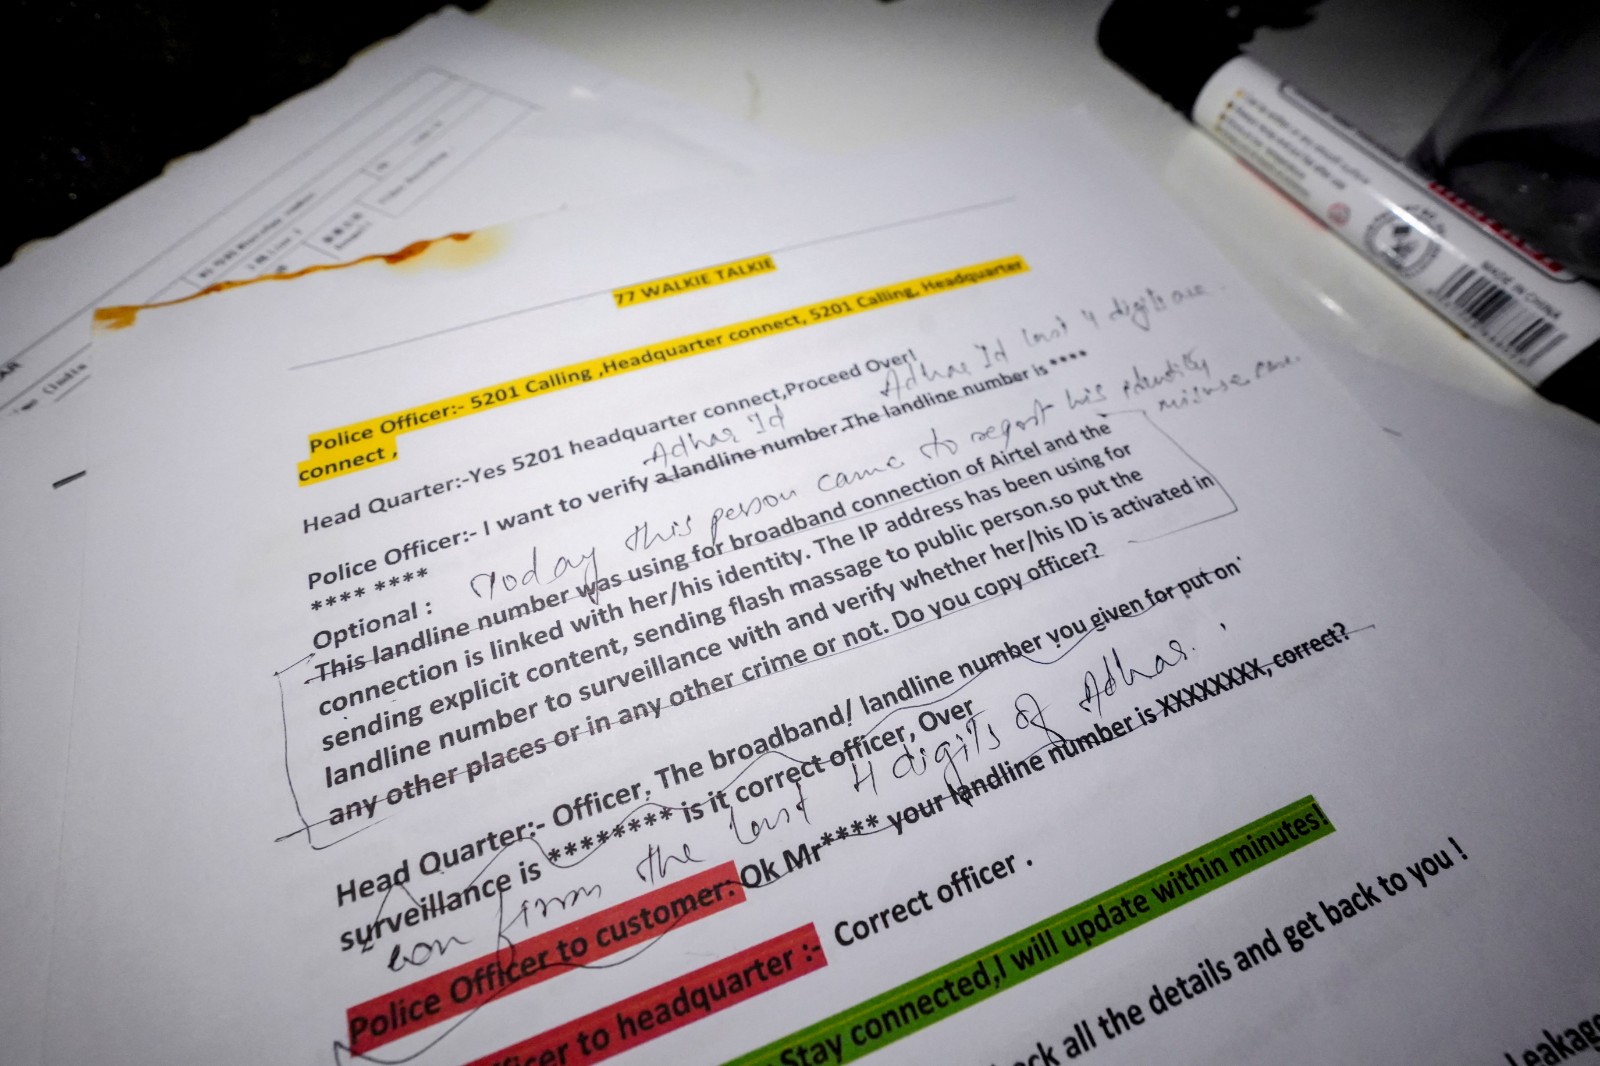 77 WALKIE TALKIE
Police Officer:- 5201 Calling ,Headquarter connect, 5201 Calling, Headquarter
connect ,
Head Quarter:-Yes 5201 headquarter connect,Proceed Over!
Adhar Id Adhar Id last 4 digits are.
Police Officer:- I want to verify a landline number.The landline number is ****
**** ****
Today this person came to report his identity
misuse case.
Optional :
This landline number was using for broadband connection of Airtel and the
connection is linked with her/his identity. The IP address has been using for
sending explicit content, sending flash massage to public person.so put the
landline number to surveillance with and verify whether her/his ID is activated in
any other places or in any other crime or not. Do you copy officer?
Head Quarter:- Officer, The broadband/ landline number you given for put on
surveillance is ******** is it correct officer, Over
confirm the last 4 digits of Adhar.
Police Officer to customer: Ok Mr**** your landline number is XXXXXXXX, correct?
ficer to headquarter :- Correct officer .
Stay connected,I will update within minutes!
ck all the details and get back to you !
Leakage
MADE IN CHINA